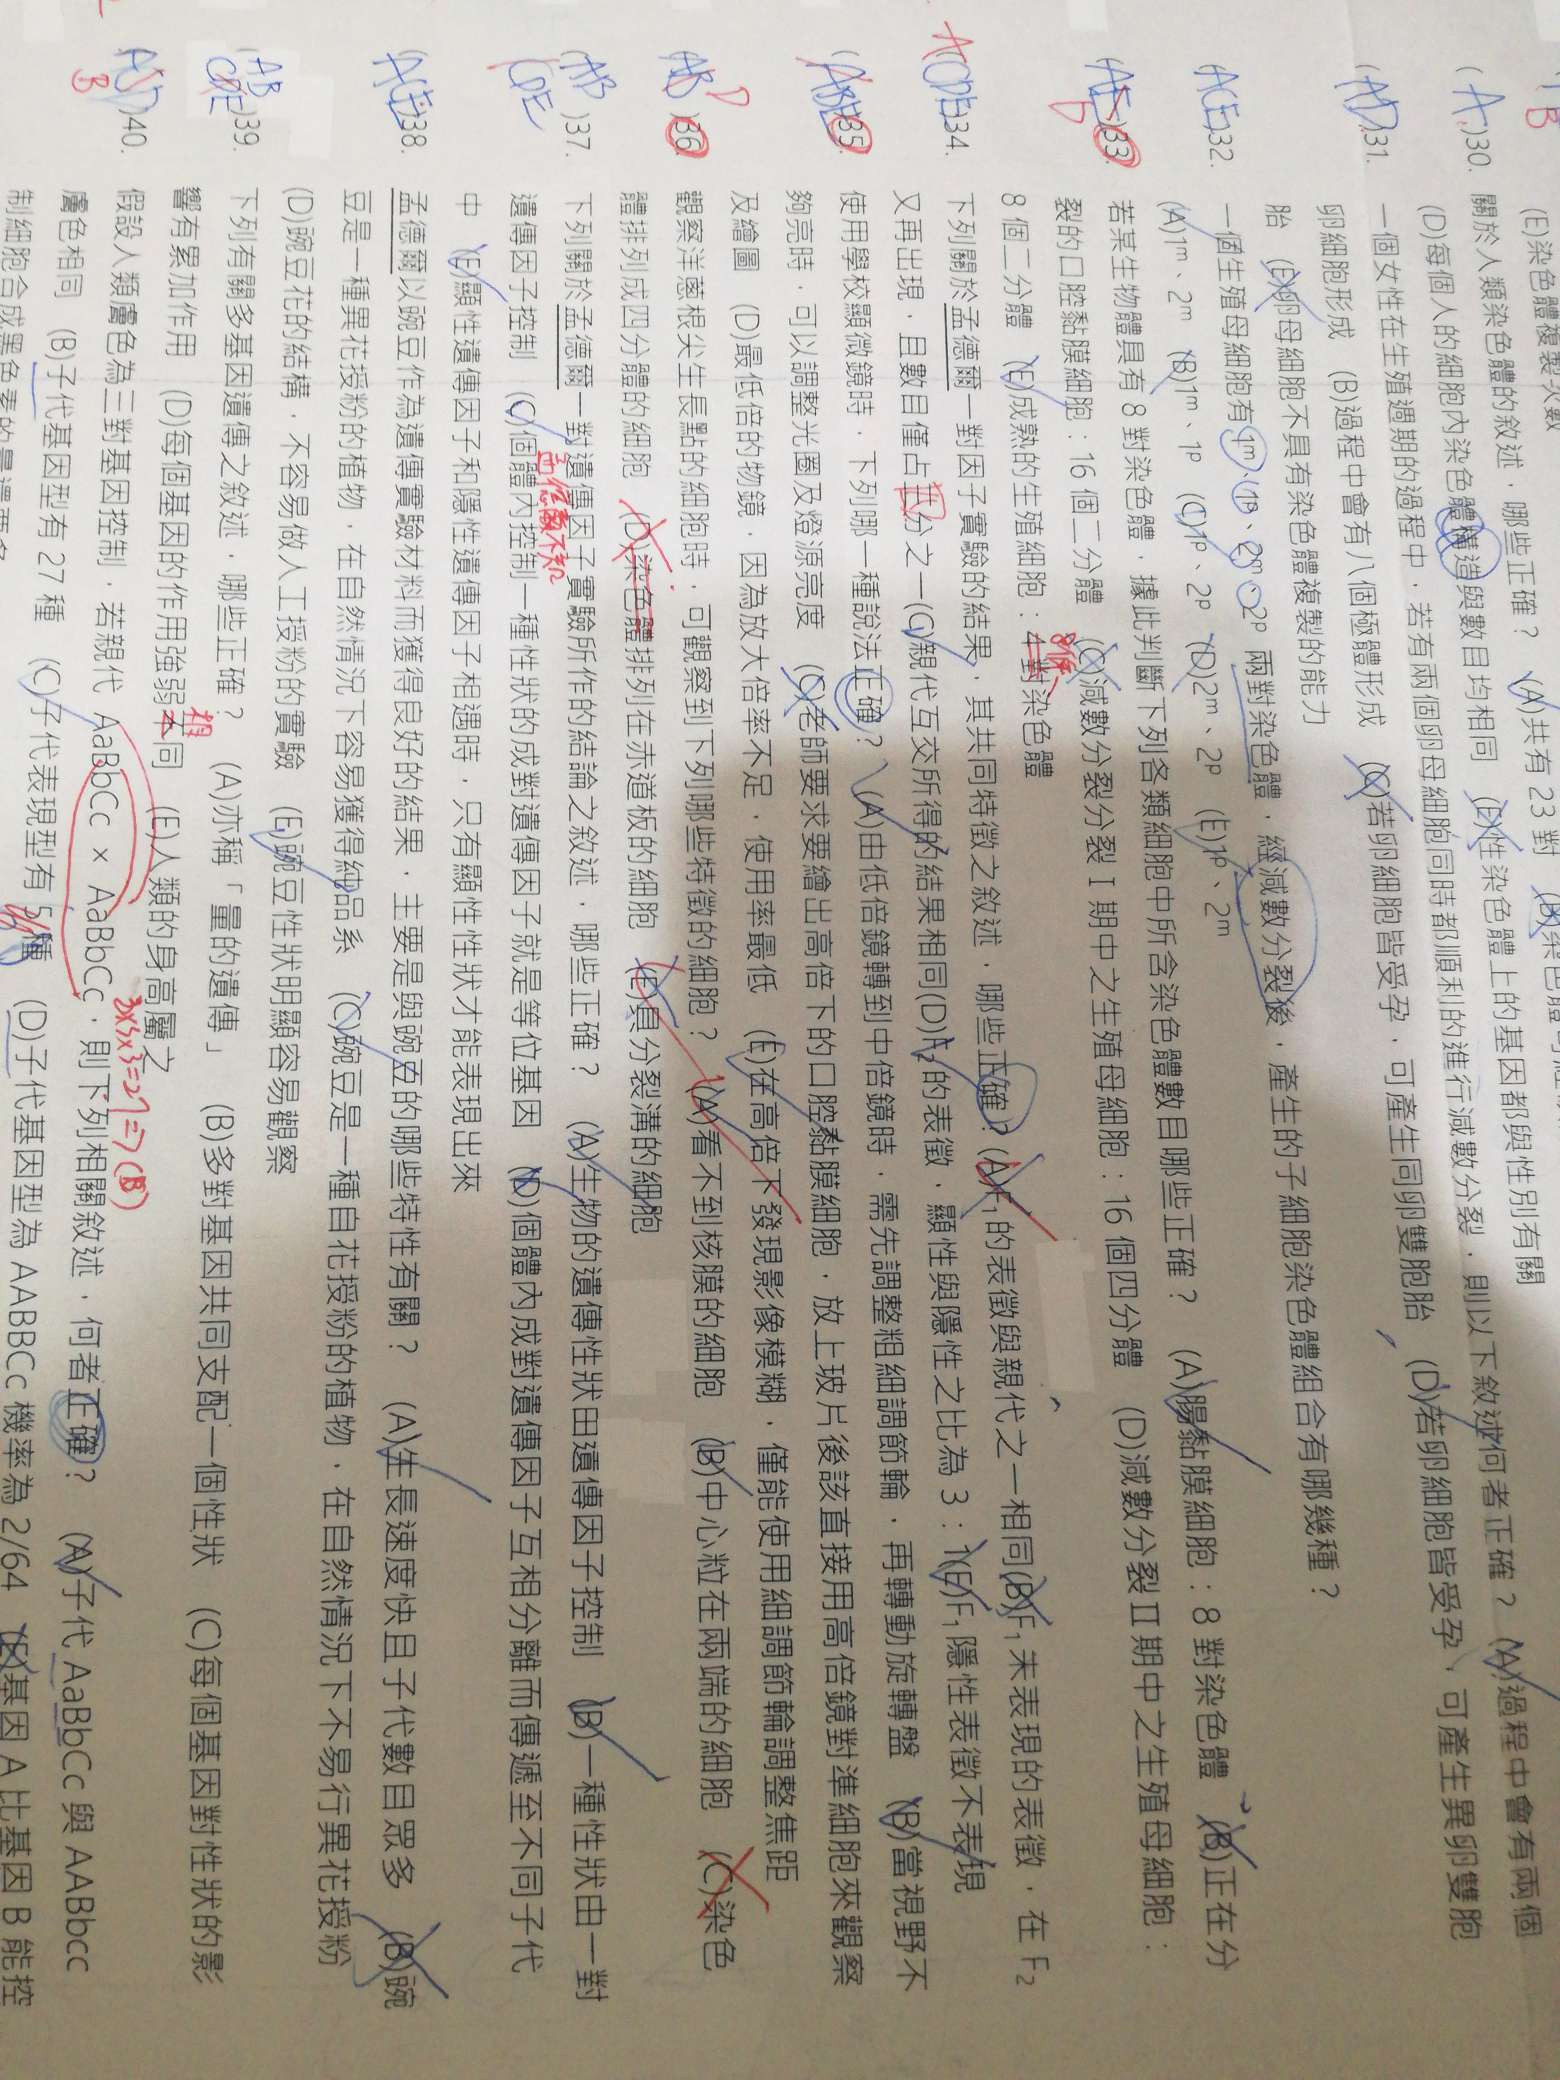 (E)染色體複製次數
關於人類染色體的敘述，哪些正確？ (A)共有 23 對
(A)30. (D)每個人的細胞內染色體構造與數目均相同 (E)性染色體上的基因都與性別有關
(AD)31. 一個女性在生殖週期的過程中，若有兩個卵母細胞同時都順利的進行減數分裂，則以下敘述何者正確？ (A)過程中會有兩個
卵細胞形成 (B)過程中會有八個極體形成 (C)若卵細胞皆受孕，可產生同卵雙胞胎 (D)若卵細胞皆受孕，可產生異卵雙胞
胎 (E)卵母細胞不具有染色體複製的能力
(ACE)32. 一個生殖母細胞有 1m、1p、2m、2p 兩對染色體，經減數分裂後，產生的子細胞染色體組合有哪幾種？
(A)1m、2m (B)1m、1p (C)1p、2p (D)2m、2p (E)1p、2m
(AE)33. 若某生物體具有 8 對染色體，據此判斷下列各類細胞中所含染色體數目哪些正確？ (A)腸黏膜細胞：8 對染色體 (B)正在分
裂的口腔黏膜細胞：16 個二分體 (C)減數分裂分裂 I 期中之生殖母細胞：16 個四分體 (D)減數分裂 II 期中之生殖母細胞：
8 個二分體 (E)成熟的生殖細胞：4 對染色體
8條
A(CDE)34. 下列關於孟德爾一對因子實驗的結果，其共同特徵之敘述，哪些正確？(A)F1 的表徵與親代之一相同(B)F1 未表現的表徵，在 F2
又再出現，且數目僅占 分之一(C)親代互交所得的結果相同(D)F2 的表徵，顯性與隱性之比為 3：1(E)F1 隱性表徵不表現
(ABE)35. 使用學校顯微鏡時，下列哪一種說法正確？ (A)由低倍鏡轉到中倍鏡時，需先調整粗細調節輪，再轉動旋轉盤 (B)當視野不
夠亮時，可以調整光圈及燈源亮度 (C)老師要求要繪出高倍下的口腔黏膜細胞，放上玻片後該直接用高倍鏡對準細胞來觀察
及繪圖 (D)最低倍的物鏡，因為放大倍率不足，使用率最低 (E)在高倍下發現影像模糊，僅能使用細調節輪調整焦距
(AB)D 36. 觀察洋蔥根尖生長點的細胞時，可觀察到下列哪些特徵的細胞？ (A)看不到核膜的細胞 (B)中心粒在兩端的細胞 (C)染色
體排列成四分體的細胞 (D)染色體排列在赤道板的細胞 (E)具分裂溝的細胞
(ABCDE)37. 下列關於孟德爾一對遺傳因子實驗所作的結論之敘述，哪些正確？ (A)生物的遺傳性狀由遺傳因子控制 (B)一種性狀由一對
遺傳因子控制 (C)個體內控制一種性狀的成對遺傳因子就是等位基因 (D)個體內成對遺傳因子互相分離而傳遞至不同子代
中 (E)顯性遺傳因子和隱性遺傳因子相遇時，只有顯性性狀才能表現出來
(ACE)38. 孟德爾以豌豆作為遺傳實驗材料而獲得良好的結果，主要是與豌豆的哪些特性有關？ (A)生長速度快且子代數目眾多 (B)豌
豆是一種異花授粉的植物，在自然情況下容易獲得純品系 (C)豌豆是一種自花授粉的植物，在自然情況下不易行異花授粉
(D)豌豆花的結構，不容易做人工授粉的實驗 (E)豌豆性狀明顯容易觀察
39. 下列有關多基因遺傳之敘述，哪些正確？ (A)亦稱「量的遺傳」 (B)多對基因共同支配一個性狀 (C)每個基因對性狀的影
響有累加作用 (D)每個基因的作用強弱不同 (E)人類的身高屬之
相
3×3×3=27⇒(B)
40. 假設人類膚色為三對基因控制，若親代 AaBbCc × AaBbCc，則下列相關敘述，何者正確？ (A)子代 AaBbCc 與 AABbcc
膚色相同 (B)子代基因型有 27 種 (C)子代表現型有 5 種 (D)子代基因型為 AABBCc 機率為 2/64 (E)基因 A 比基因 B 能控
制細胞合成黑色素的量還要多